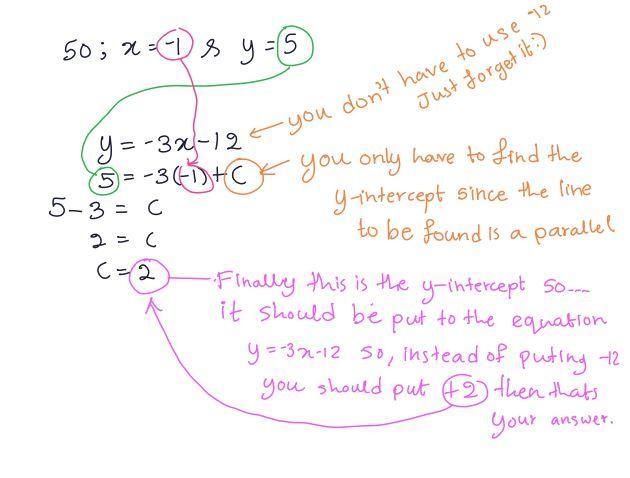 50; x = -1 & y = 5
you don't have to use -12
Just forget it :)
y = -3x-12
5 = -3(-1)+C
you only have to find the
y-intercept since the line
to be found is a parallel
5-3 = C
2 = C
C = 2
Finally this is the y-intercept 50....
it should be put to the equation
y=-3x-12 50, instead of puting -12
you should put +2 then thats
your answer.